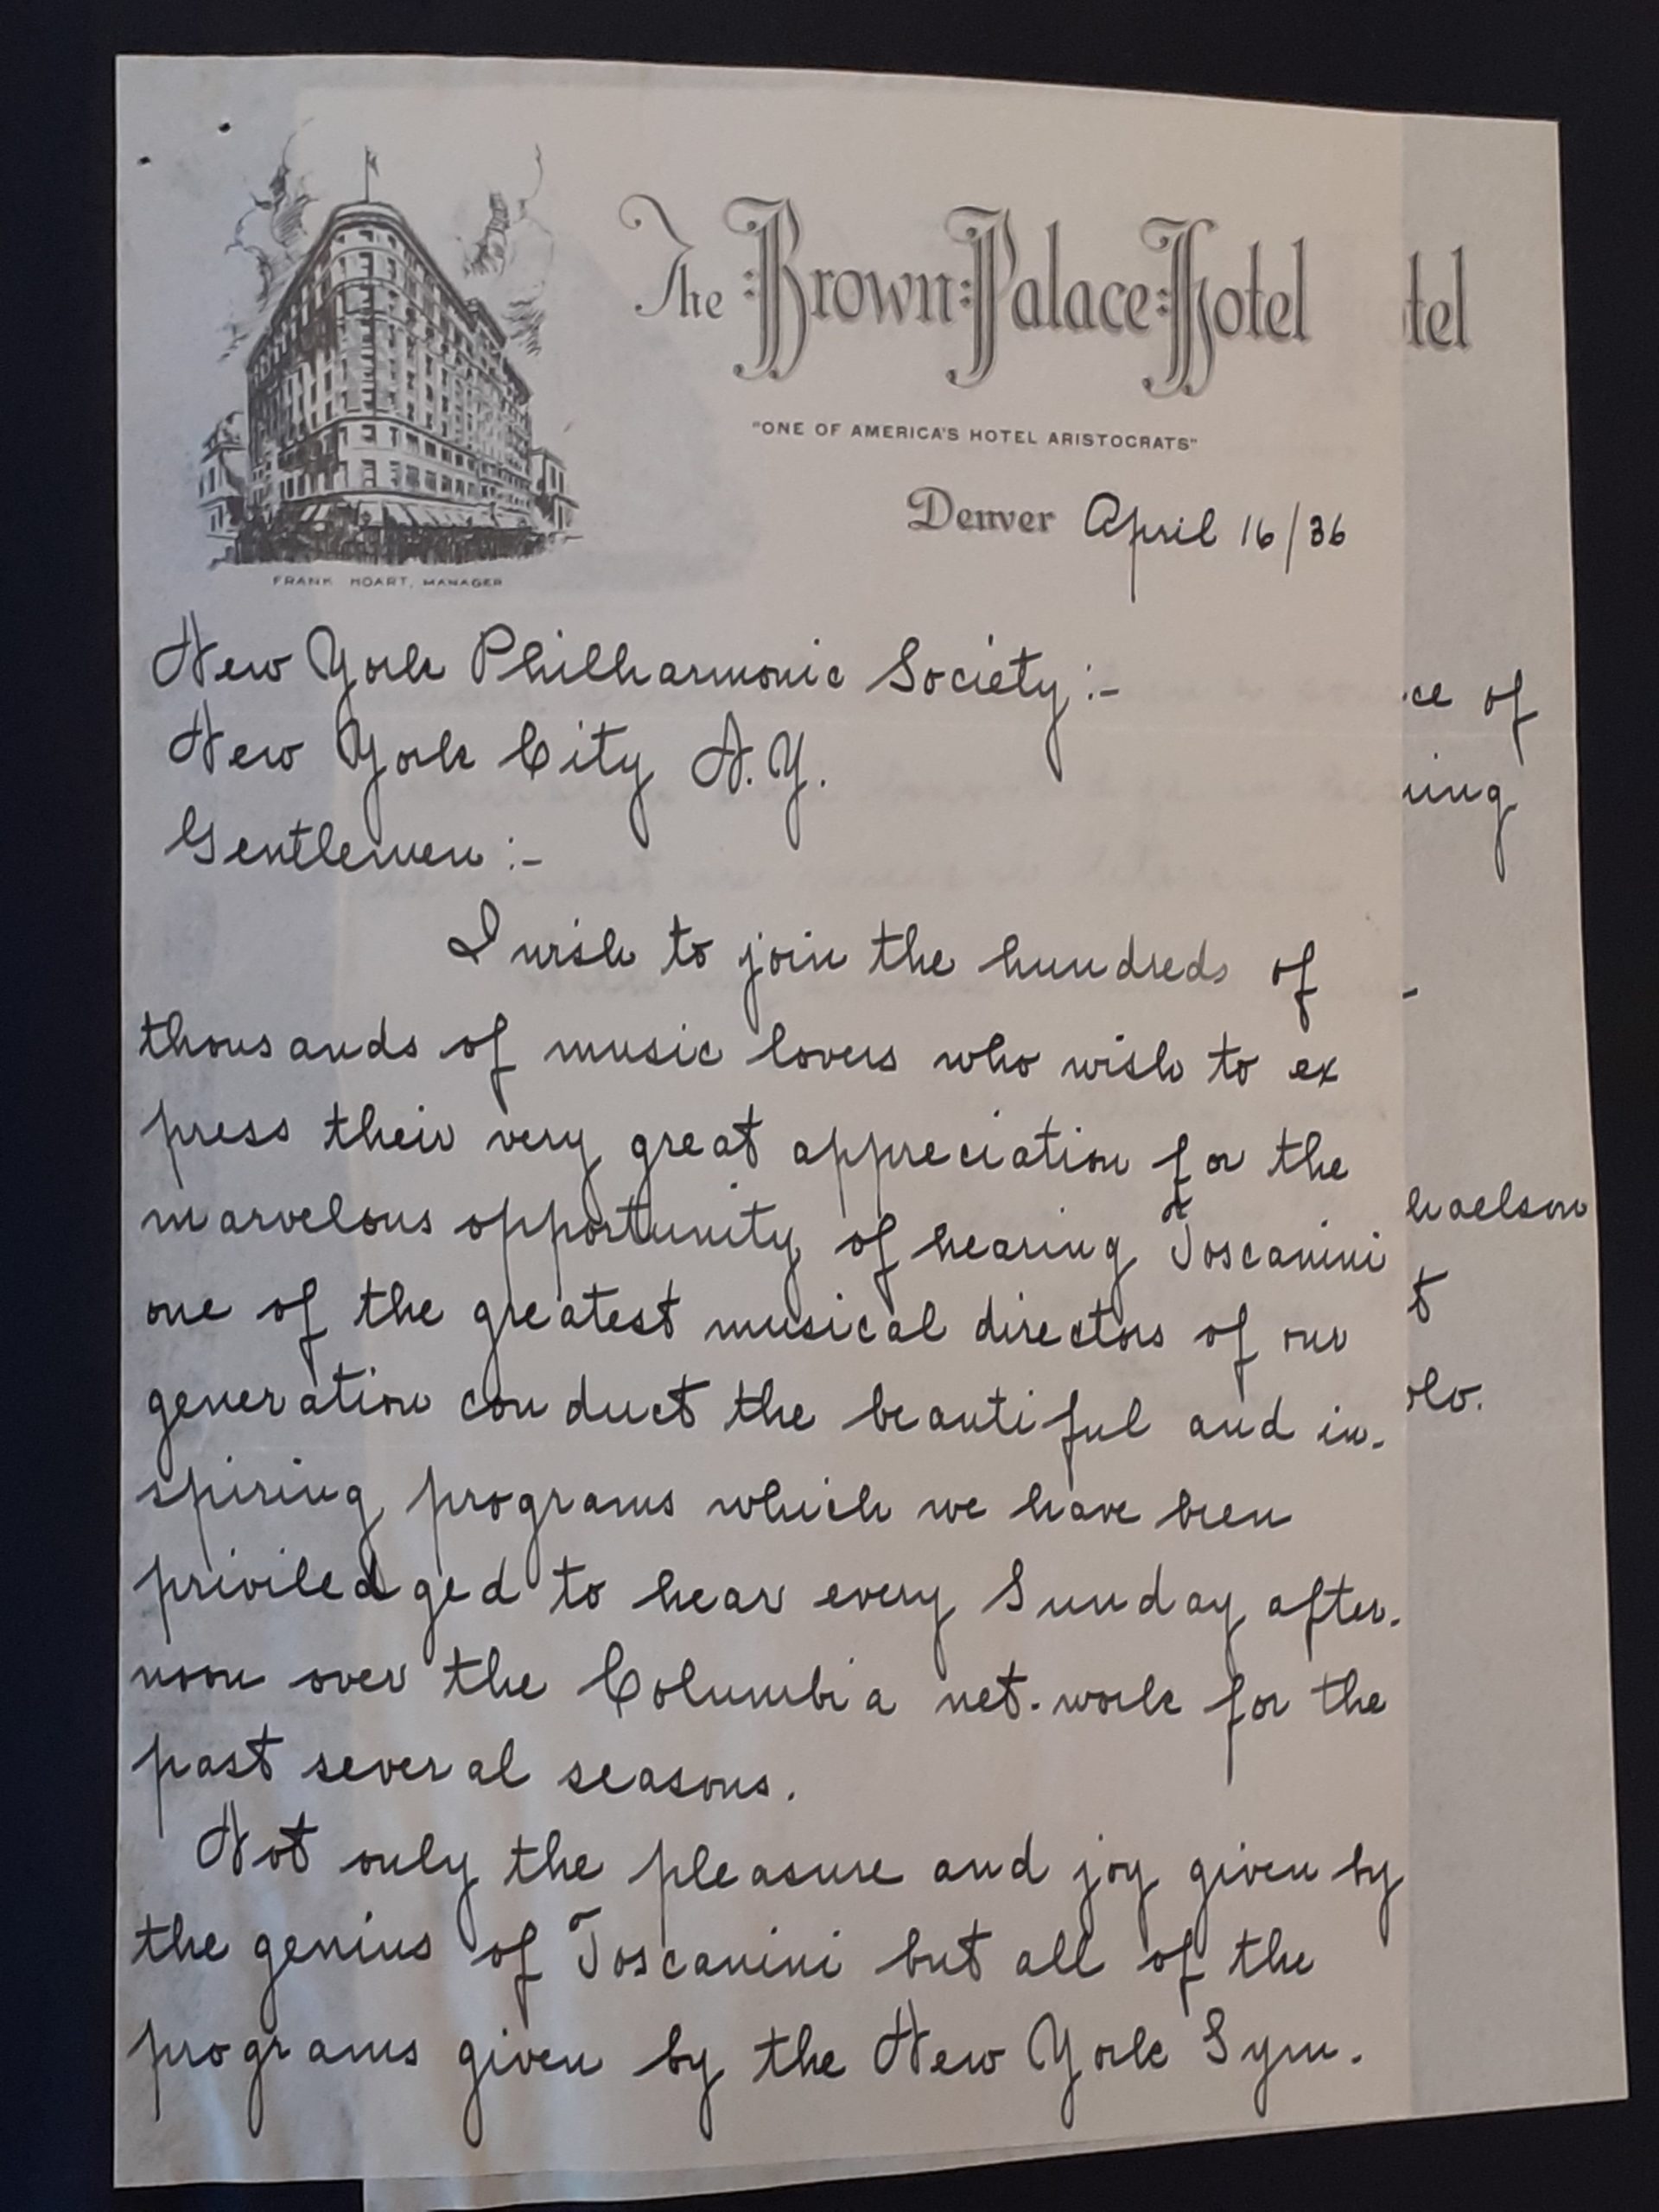 The Brown Palace Hotel
"ONE OF AMERICA'S HOTEL ARISTOCRATS"
Denver April 16/36
FRANK HOART, MANAGER
New York Philharmonic Society:-
New York City N.Y.
Gentlemen:-
I wish to join the hundreds of
thousands of music lovers who wish to ex
press their very great appreciation for the
marvelous opportunity of hearing Toscanini
one of the greatest musical directors of our
generation conduct the beautiful and in-
spiring programs which we have been
priviledged to hear every Sunday after-
noon over the Columbia net-work for the
past several seasons.
Not only the pleasure and joy given by
the genius of Toscanini but all of the
programs given by the New York Sym-
tel
ce of
ing
-
haelson
t
olo.